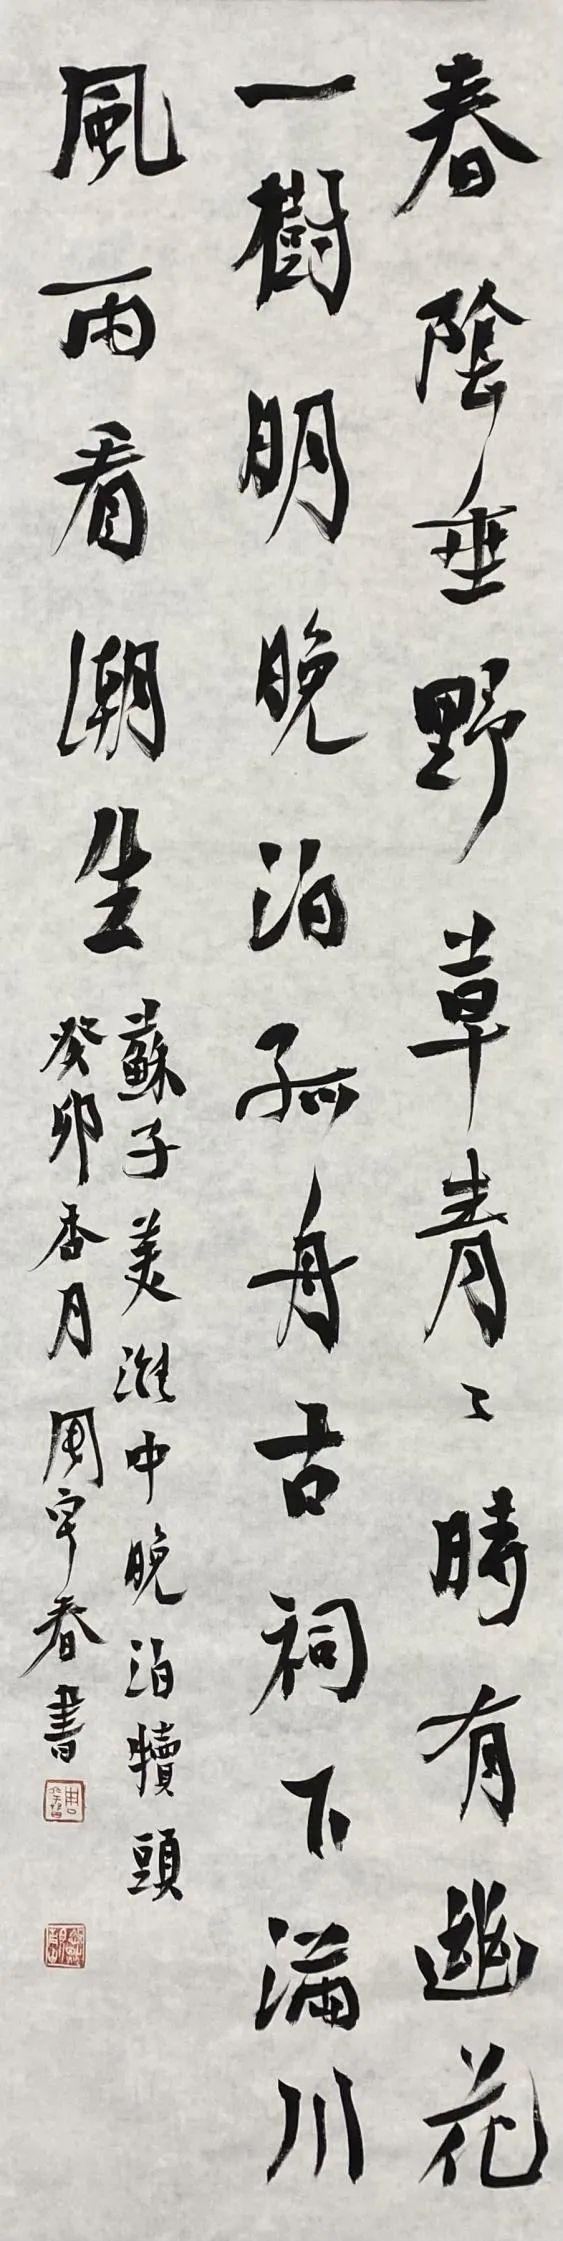 春陰垂野草青〻時有幽花
一樹明晚泊孤舟古祠下滿川
風雨看潮生
蘇子美淮中晚泊犢頭
癸卯杏月周宇春書